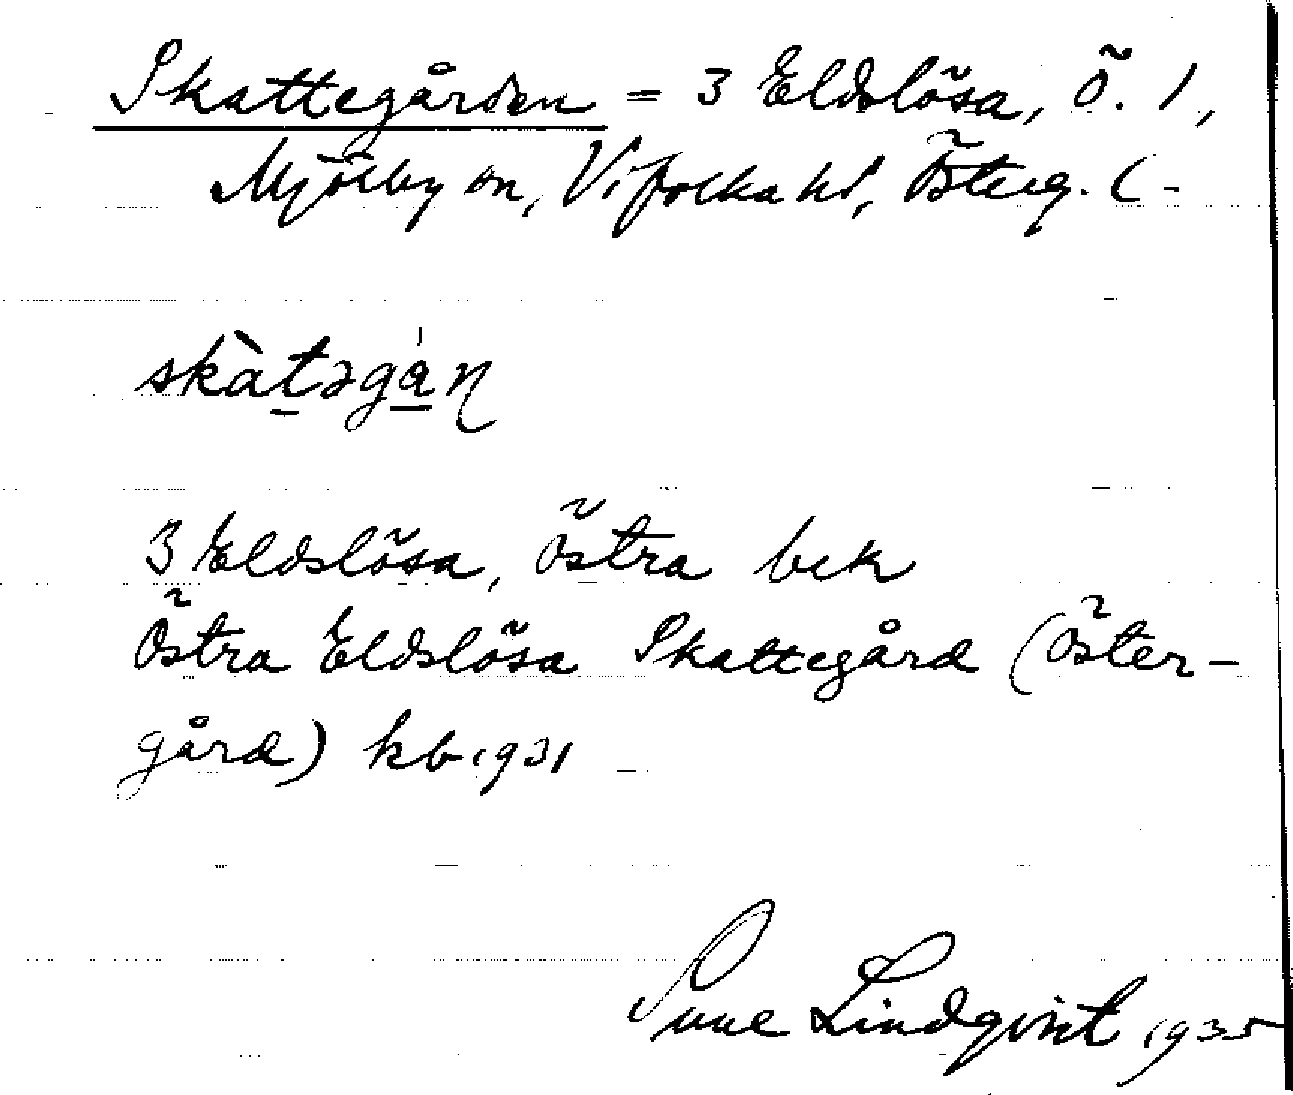 Skattegården = 3 Eldslösa, Ö. 1,
Mjölby sn, Vifolka hd, Österg. (-
skàt̠əgå̠ṇ
3 Eldslösa, Östra bek
Östra Eldslösa Skattegård (Öster-
gård) kb 1931
Sune Lindqvist 1935